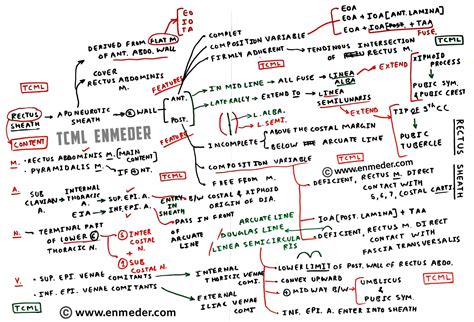 EO
IO
TA
DERIVED FROM FLAT M.
OF ANT. ABDO. WALL
COVER
RECTUS ABDOMINIS
M.
TCML
RECTUS SHEATH → APONEUROTIC SHEATH → 2 WALL
ANT.
POST.
CONTENT
TCML ENMEDER
FEATURES
COMPLET
COMPOSITION VARIABLE
EOA
EOA + IOA [ANT. LAMINA]
EOA + IOA [POST. + TAA
FUSE.
FIRMLY ADHERENT → TENDINOUS INTERSECTION
OF RECTUS M.
TCML
IN MIDLINE → ALL FUSE → LINEA
ALBA
EXTEND
XIPHOID
PROCESS
PUBIC SYM.
& PUBIC CREST
LATERALLY → EXTEND TO → LINEA
SEMILUNARIS
EXTEND
TIP OF 9TH CC
PUBIC
TUBERCLE
L. ALBA.
L. SEMI.
FEATURES
INCOMPLETE
ABOVE THE COSTAL MARGIN
BELOW ARCUATE LINE
TCML
RECTUS SHEATH
© www.enmeder.com
COMPOSITION VARIABLE
FREE FROM M.
DEFICIENT, RECTUS M. DIRECT
CONTACT WITH
5, 6, 7, COSTAL CARTI.
IOA [POST. LAMINA] + TAA
DEFICIENT, RECTUS M. DIRECT
CONTACT WITH
FASCIA TRANSVERSALIS
M. • RECTUS ABDOMINIS M. [MAIN CONTENT]
• PYRAMIDALIS M. → IF NT.
A. SUB CLAVIAN A. INTERNAL THORACIC A. → SUP. EPI. A.
EIA → INF. EPI. A.
ENTRY IN SHEATH
B/W COSTAL & XIPHOID
ORIGIN OF DIA.
PASS IN FRONT
OF
ARCUATE
LINE
ARCUATE LINE
DOUGLAS LINE
LINEA SEMICIRCULA
RIS
TCML
N. TERMINAL PART
OF LOWER 6
THORACIC N.
5 INTER
COSTAL N.
1 SUB
COSTAL N.
LOWER LIMIT OF POST. WALL OF RECTUS ABDO.
CONVEX UPWARD
MIDWAY B/W
UMBLICUS
&
PUBIC SYM.
TCML
INF. EPI. A. ENTER INTO SHEATH
V. • SUP. EPI. VENAE COMITANTS → INTERNAL
THORACIC VENAE COMI.
• INF. EPI. VENAE COMITANTS → EXTERNAL
ILIAC VENAE COMI.
TCML © www.enmeder.com